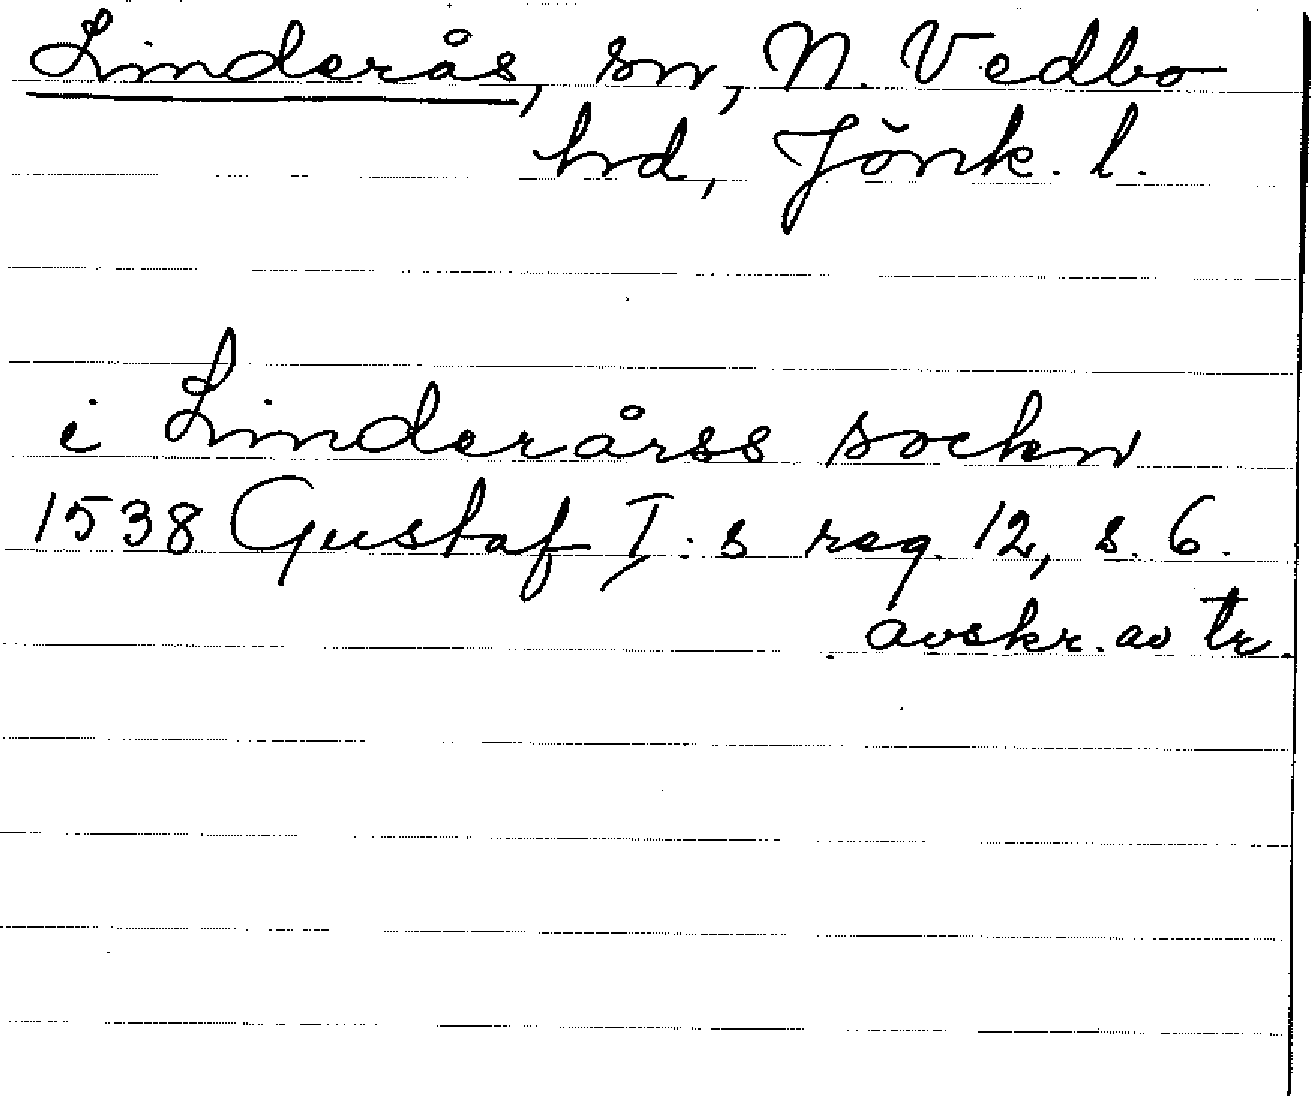 Linderås, sn, N. Vedbo
hrd, Jönk. l.
i Linderårss sockn
1538 Gustaf I:s reg. 12, s. 6.
avskr. av tr.